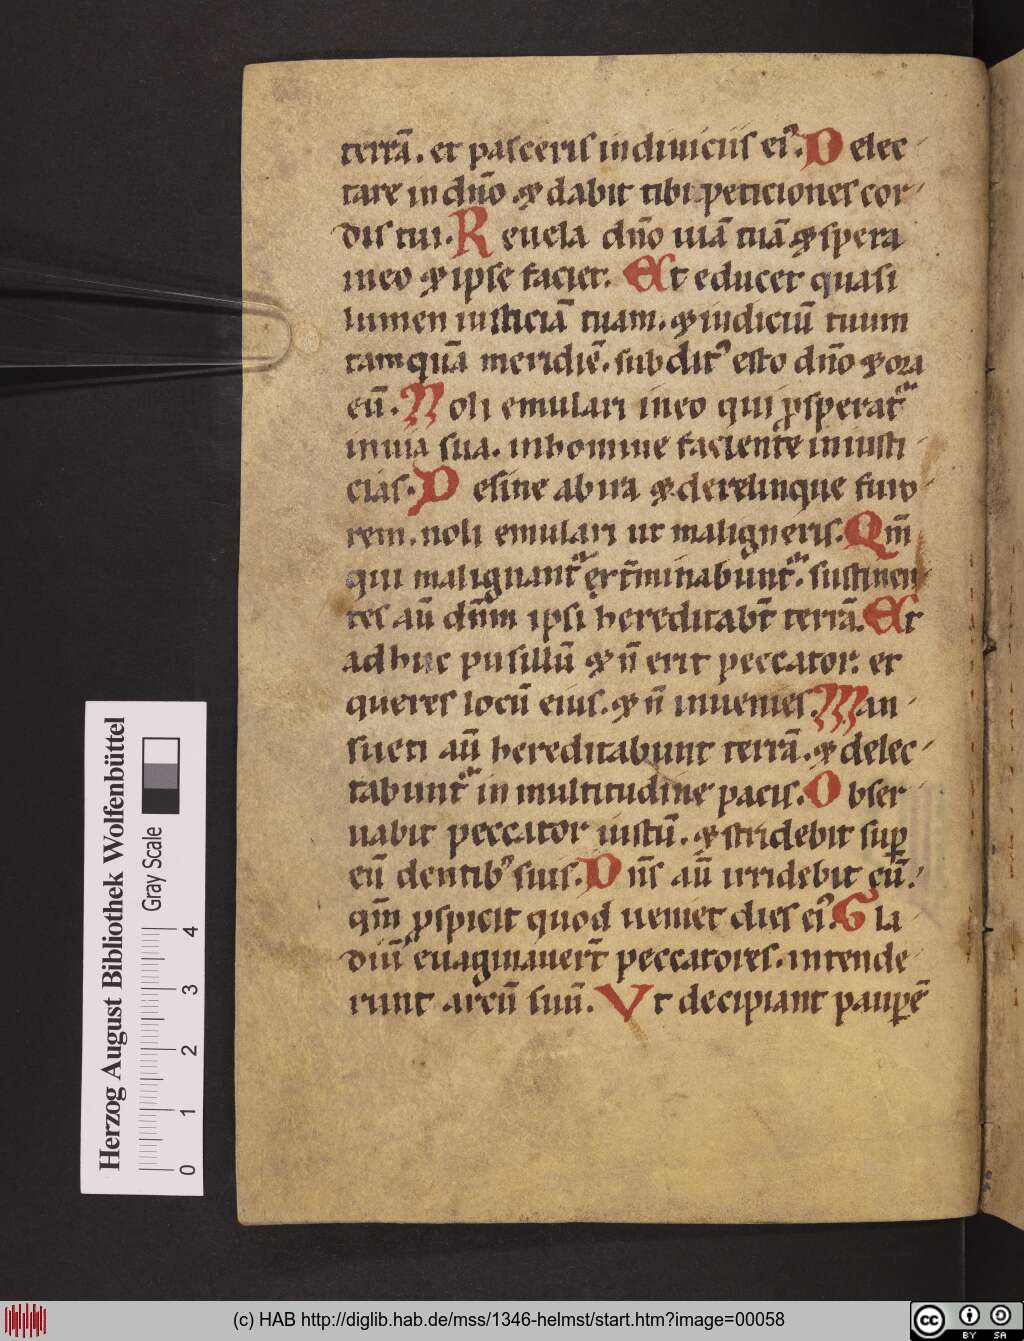 terrā. et pasceris indiuiciis ei᾽. Delec
tare in dn̄o & dabit tibi peticiones cor
dis tui. Reuela dn̄o uiā tuā & spera
in eo & ipse faciet. Et educet quasi
lumen iusticiā tuam. & iudiciū tuum
tamquā meridiē. subdit᾽ esto dn̄o & ora
eū. Noli emulari in eo qui ꝓsperat᷑
in uia sua. in homine faciente iniusti
cias. Desine ab ira & derelinque furo
rem. noli emulari ut maligneris. Qm̄
qui malignant᷑ ext̄minabunt᷑. sustinen
tes aū dn̄m ipsi hereditabt̄ terrā. Et
adhuc pusillū & n̄ erit peccator. et
queres locū eius. & n̄ inuenies. Man
sueti aū hereditabunt terrā. & delec
tabunt᷑ in multitudine pacis. Obser
uabit peccator iustū. & stridebit suꝑ
eū dentib᾽ suis. Dn̄s aū irridebit eū.
qm̄ ꝓspicit quod ueniet dies ei᾽. Gla
diū euaginauert̄ peccatores. intende
runt arcū suū. Vt decipiant pauꝑē
Herzog August Bibliothek Wolfenbüttel
Gray Scale
0 1 2 3 4
(c) HAB http://diglib.hab.de/mss/1346-helmst/start.htm?image=00058
cc BY SA